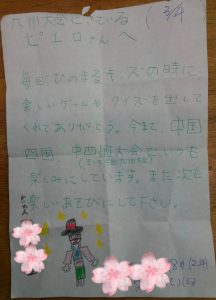 九州大会にきている
ピエロさんへ
毎回ひのまるキッズの時に、
楽しいゲームやクイズを出して
くれてありがとう。今まで、中国
四国、中四国大会でいつも
楽しみにしています。また次も
楽しいあそびにして下さい。